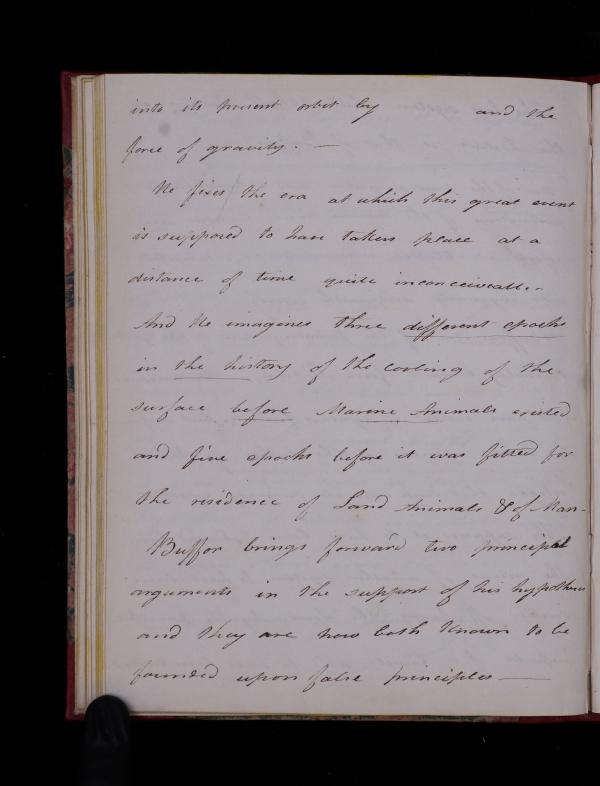 into its present orbit by and the
force of gravity. —
He fixes the era at which this great event
is supposed to have taken place at a
distance of time quite inconceivable.-
And He imagines three different epochs
in the history of the cooling of the
surface before Marine Animals existed
and five epochs before it was fitted for
the residence of Land Animals & of Man-
Buffon brings forward two principal
arguments in the support of his hypothesis
and they are now both known to be
founded upon false principles —